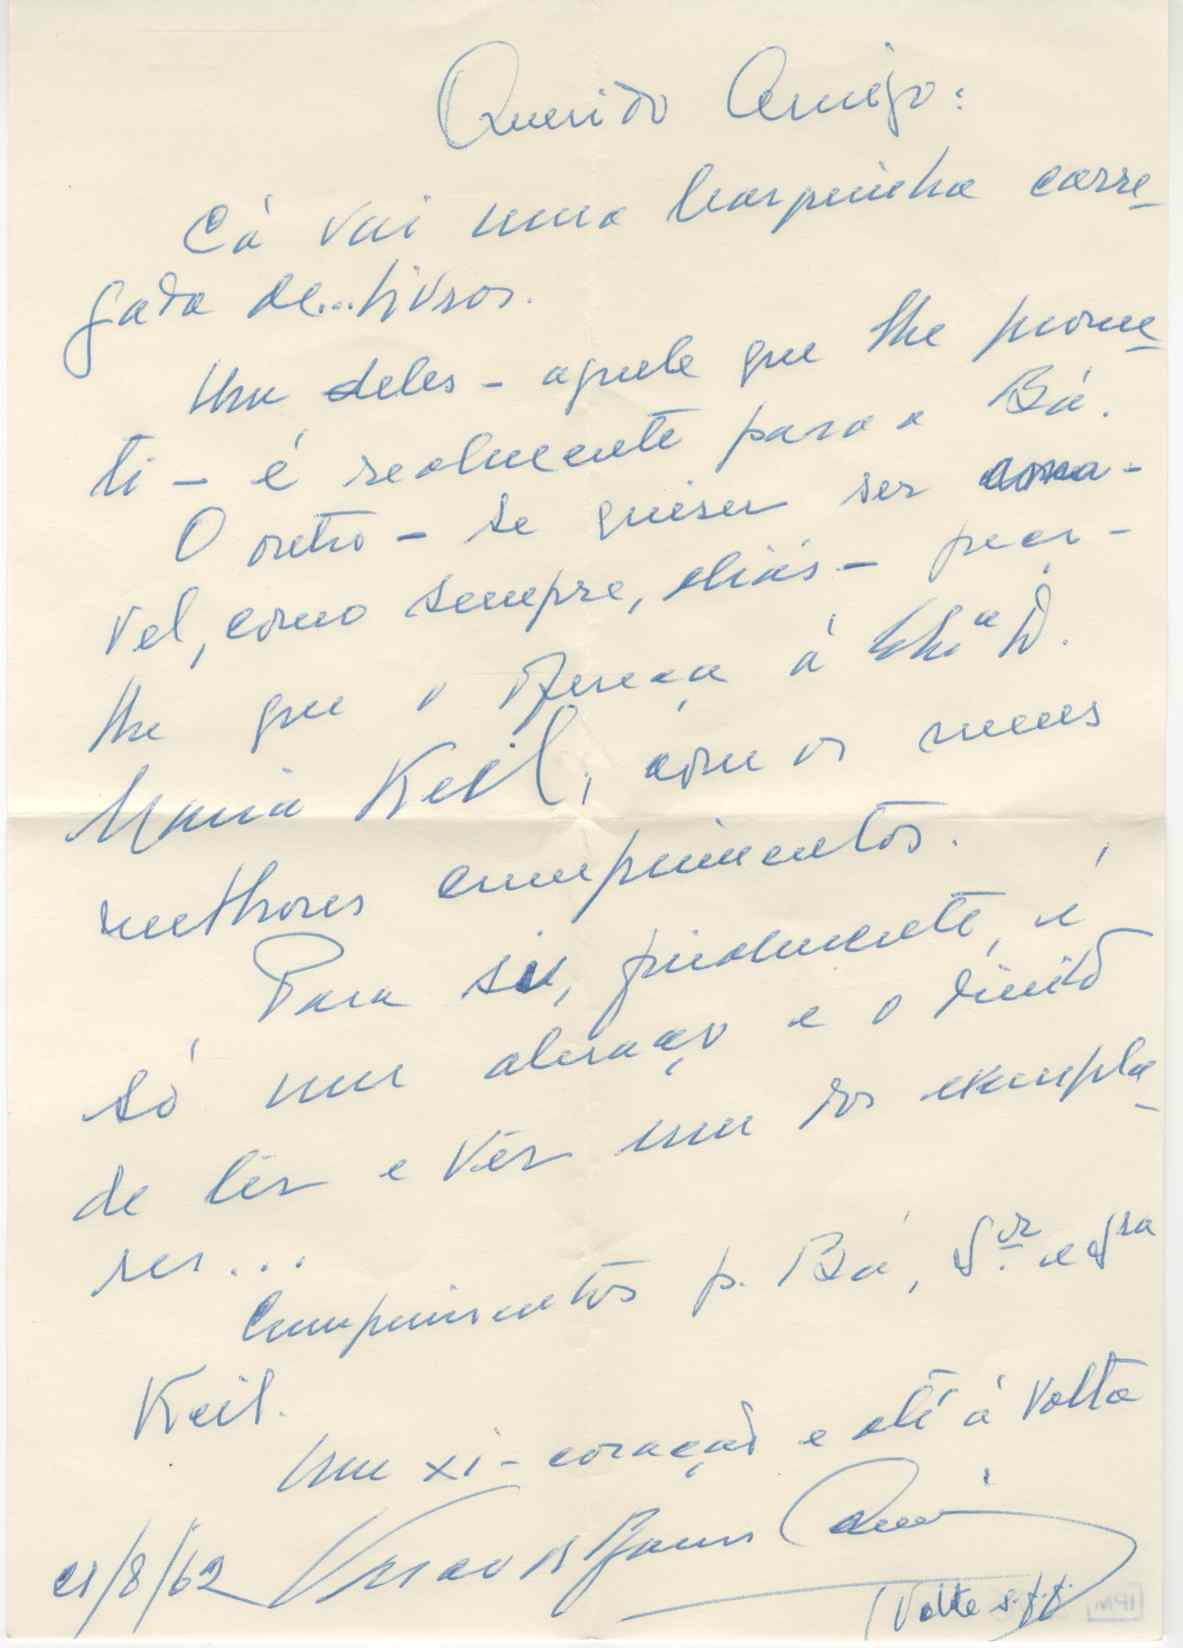 Querido Amigo:
Cá vai uma barquinha carre-
gada de...livros.
Um deles - aquele que lhe prome-
ti - é realmente para a Bá.
O outro - se quiser ser amá-
vel, como sempre, aliás - peço-
lhe que o ofereça à D.
Maria Keil, com os meus
melhores cumprimentos.
Para si, finalmente, é
só um abraço e o direito
de lêr e vêr um dos exempla-
res...
Cumprimentos p. Bá, Sr. e Sra
Keil.
Um xi-coração e até à volta
21/8/62
(Volte s.f.f.